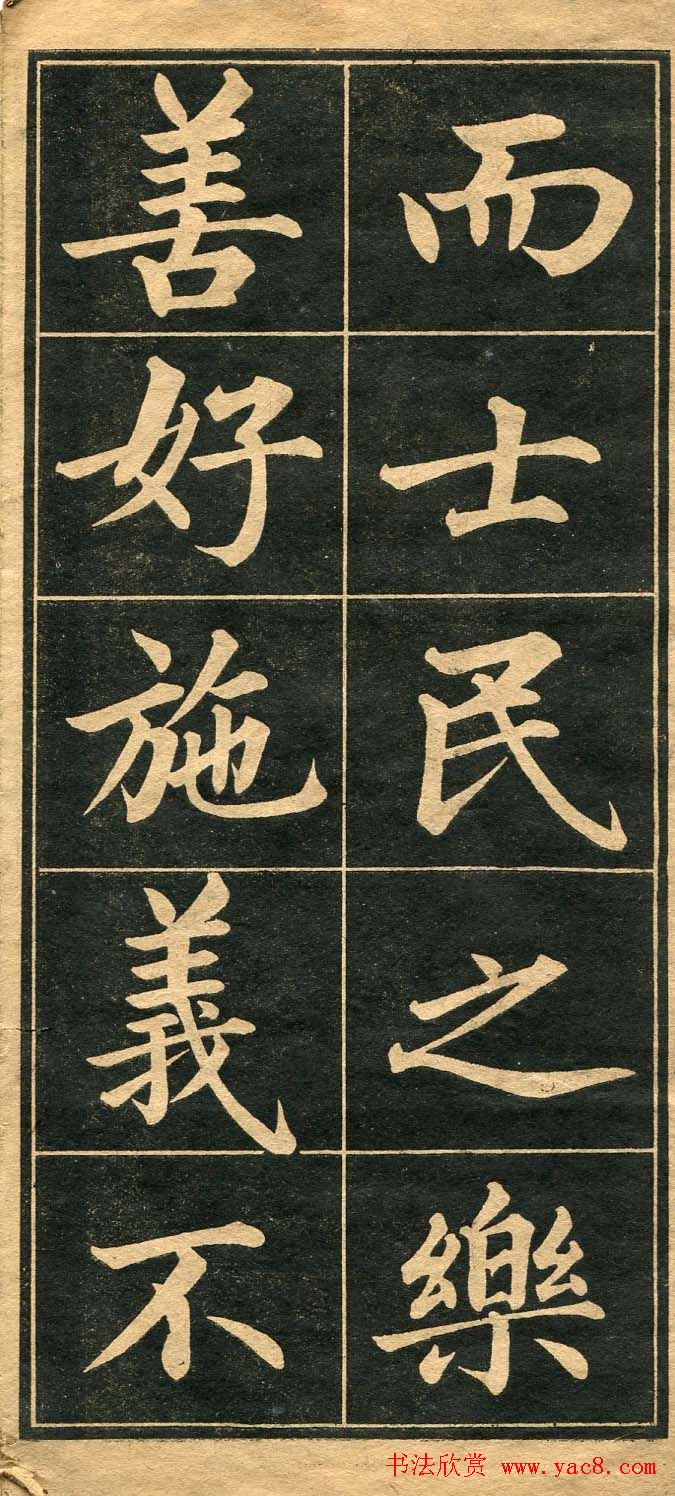 而士民之樂
善好施義不
书法欣赏 www.yac8.com